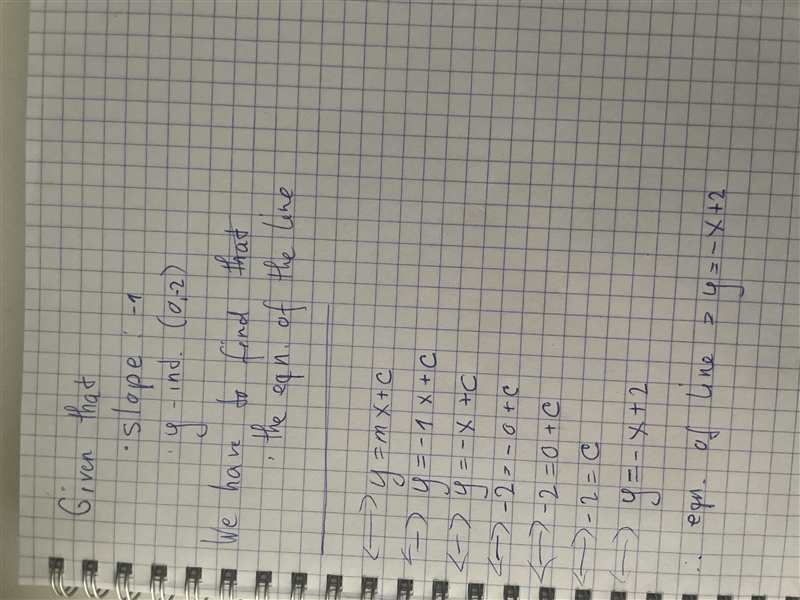 Given that
· Slope : -1
· y-int. (0,-2)
We have to find that
· the eqn. of the line
<-> y = mx + c
<-> y = -1x + c
<-> y = -x + c
<-> -2 = -0 + c
<-> -2 = 0 + c
<-> -2 = c
<-> y = -x + 2
∴ eqn. of line = y = -x + 2